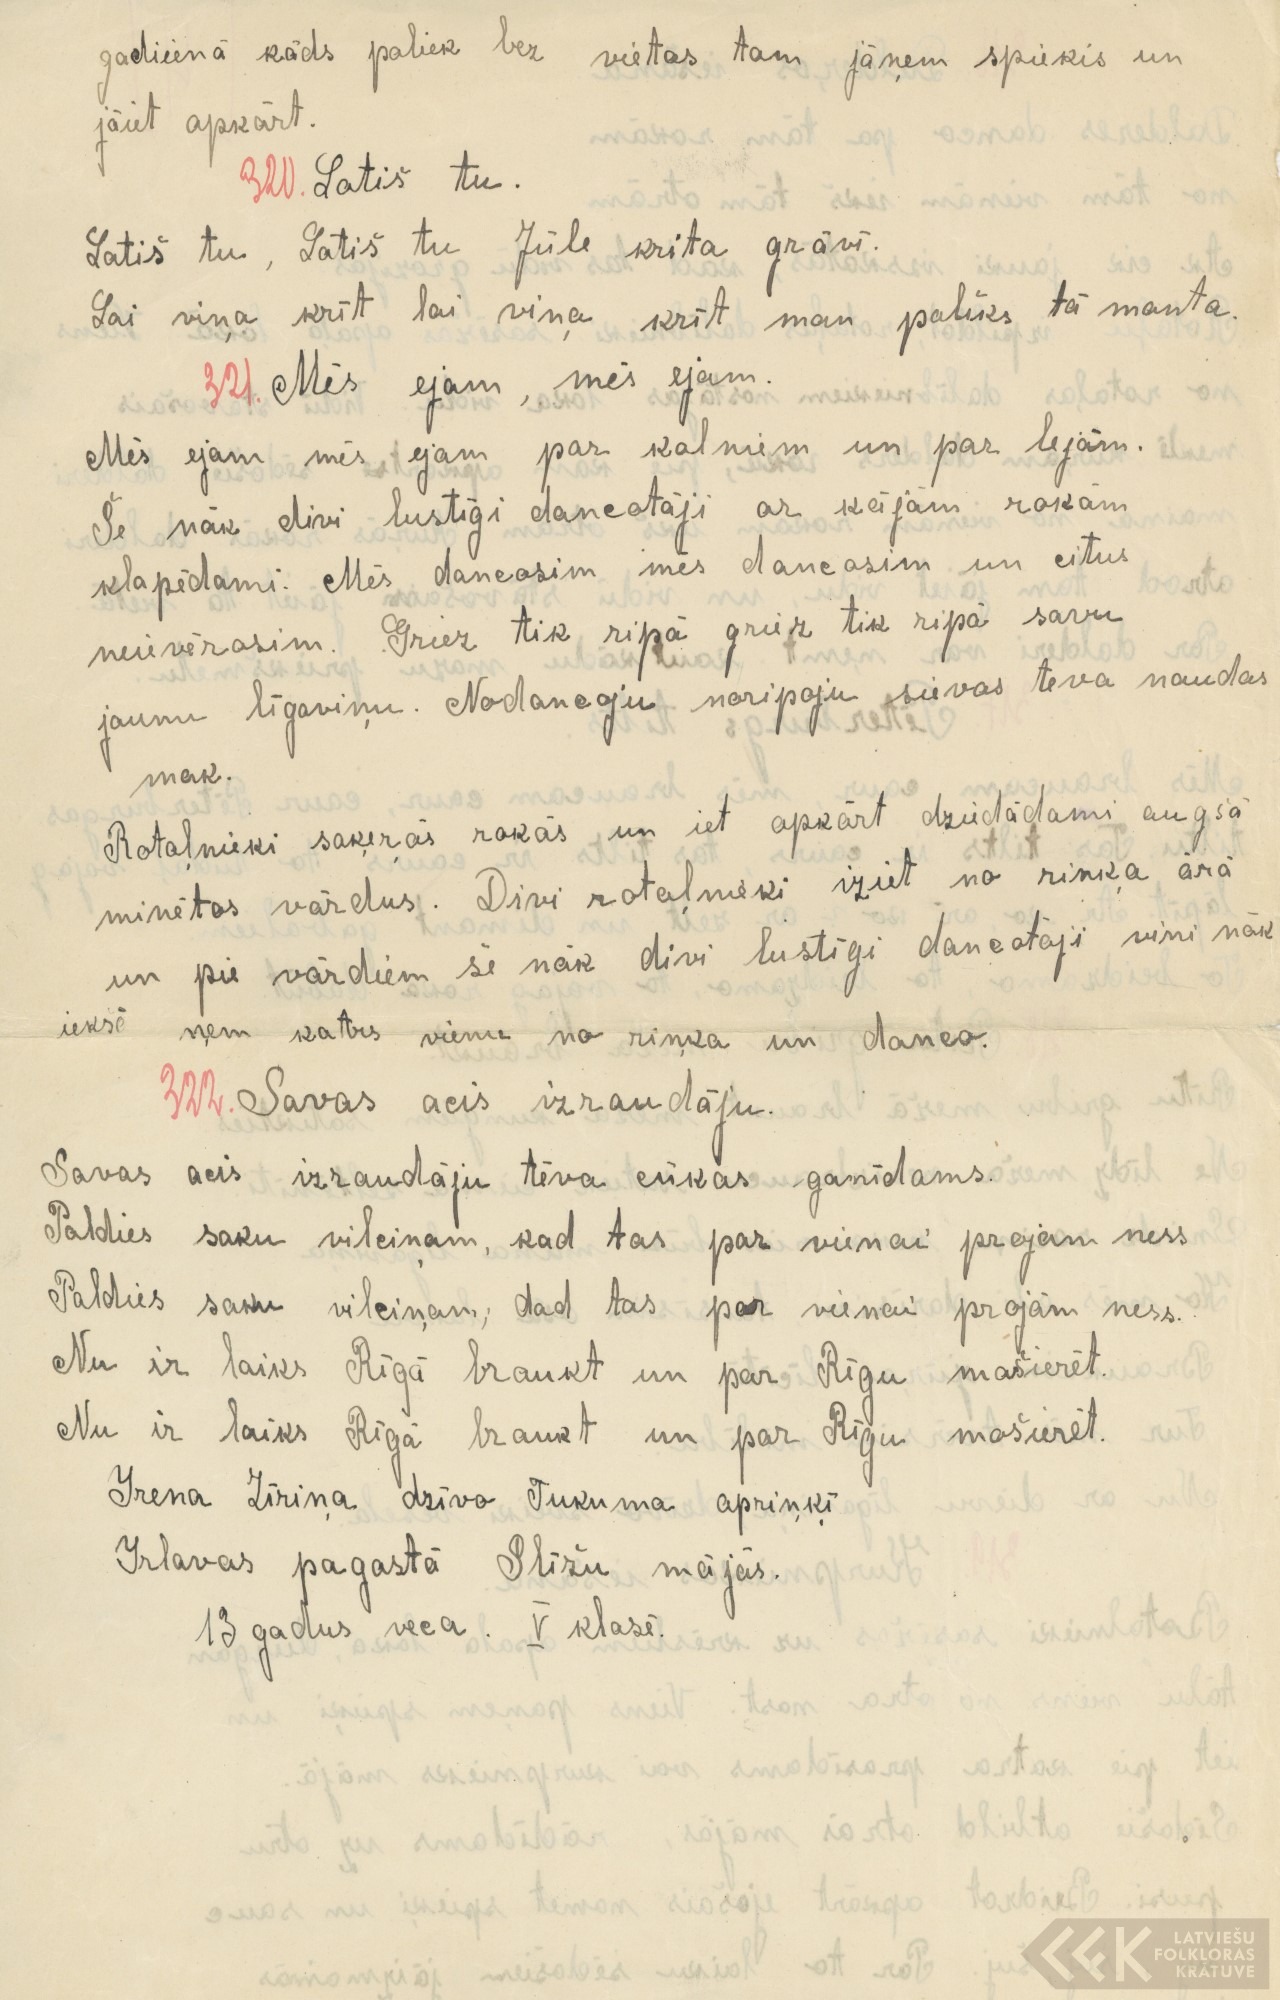 gadienā kāds paliek bez vietas tam jāņem spiekis un
jāiet apkārt.
320. Latiš tu.
Latiš tu, Latiš tu Jūle krita grāvī.
Lai viņa krīt lai viņa krīt man paliks tā manta.
321. Mēs ejam, mēs ejam.
Mēs ejam mēs ejam par kalniem un par lejām.
Še nāk divi lustīgi dancotāji ar kājām rokām
klapēdami. Mēs dancosim mēs dancosim un citus
neievērosim. Griez tik ripā griez tik ripā savu
jaunu līgaviņu. Nodancoju noripoju sievas tēva naudas
mak.
Rotaļnieki saķeŗās rokās un iet apkārt dziedādami augšā
minētos vārdus. Divi rotaļnieki iziet no riņķa ārā
un pie vārdiem še nāk divi lustīgi dancotāji viņi nāk
iekšē ņem katrs vienu no riņķa un danco.
322. Savas acis izraudāju.
Savas acis izraudāju tēva cūkas ganīdams.
Paldies saku vilciņam, kad tas par vienai projām ness
Paldies saku vilciņam, dad tas par vienai projām ness.
Nu ir laiks Rīgā braukt un par Rīgu mašierēt.
Nu ir laiks Rīgā braukt un par Rīgu mašierēt.
Irena Zīriņa dzīvo Tukuma apriņķī
Irlavas pagastā Slīžu mājās.
13 gadus veca. V klasē.
LATVIEŠU
FOLKLORAS
KRĀTUVE